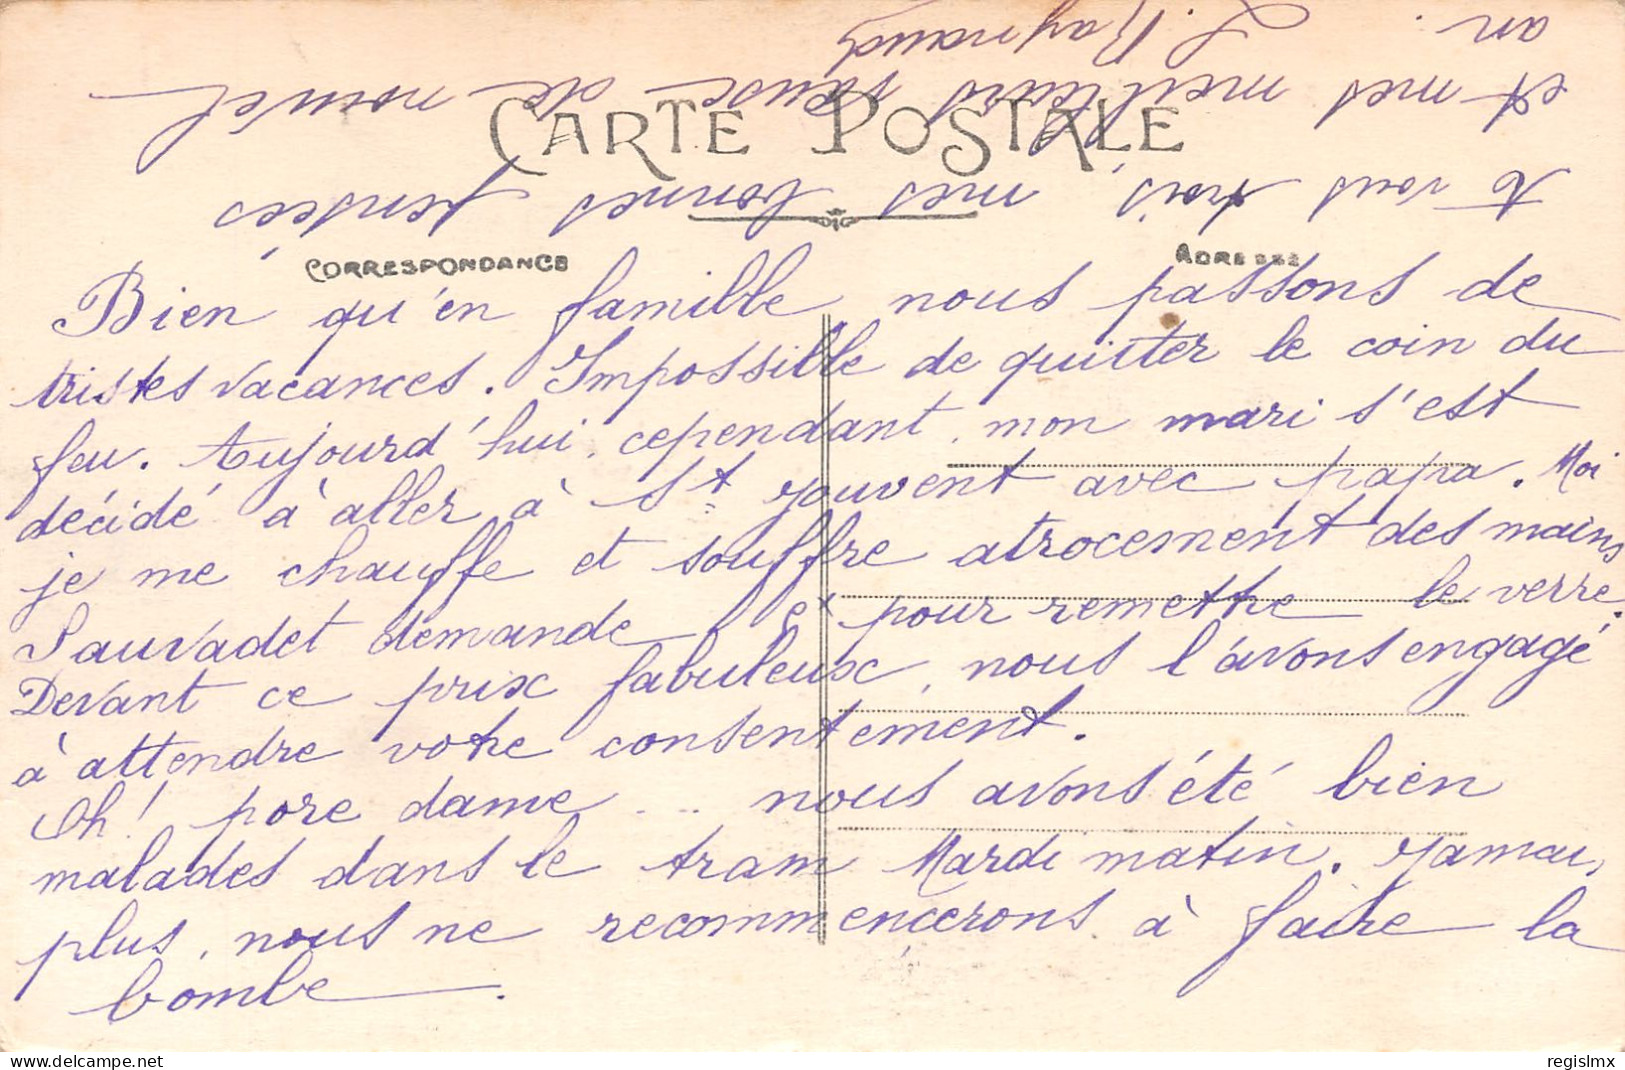 CARTE POSTALE
CORRESPONDANCE
ADRESSE
Bien qu'en famille, nous passons de
tristes vacances. Impossible de quitter le coin du
feu. Aujourd'hui, cependant, mon mari s'est
décidé à aller à St Jouvent avec papa. Moi
je me chauffe et souffre atrocement des mains
Sauvadet demande et pour remettre le verre.
Devant ce prix fabuleux, nous l'avons engagé
à attendre votre consentement.
Oh! pore dame ... nous avons été bien
malades dans le tram Mardi matin. Jamais,
plus, nous ne recommencerons à faire la
bombe.
A vous trois, mes bonnes pensées
et mes meilleurs vœux de nouvel
an.
Raynaud
regislmx
delcampe.net